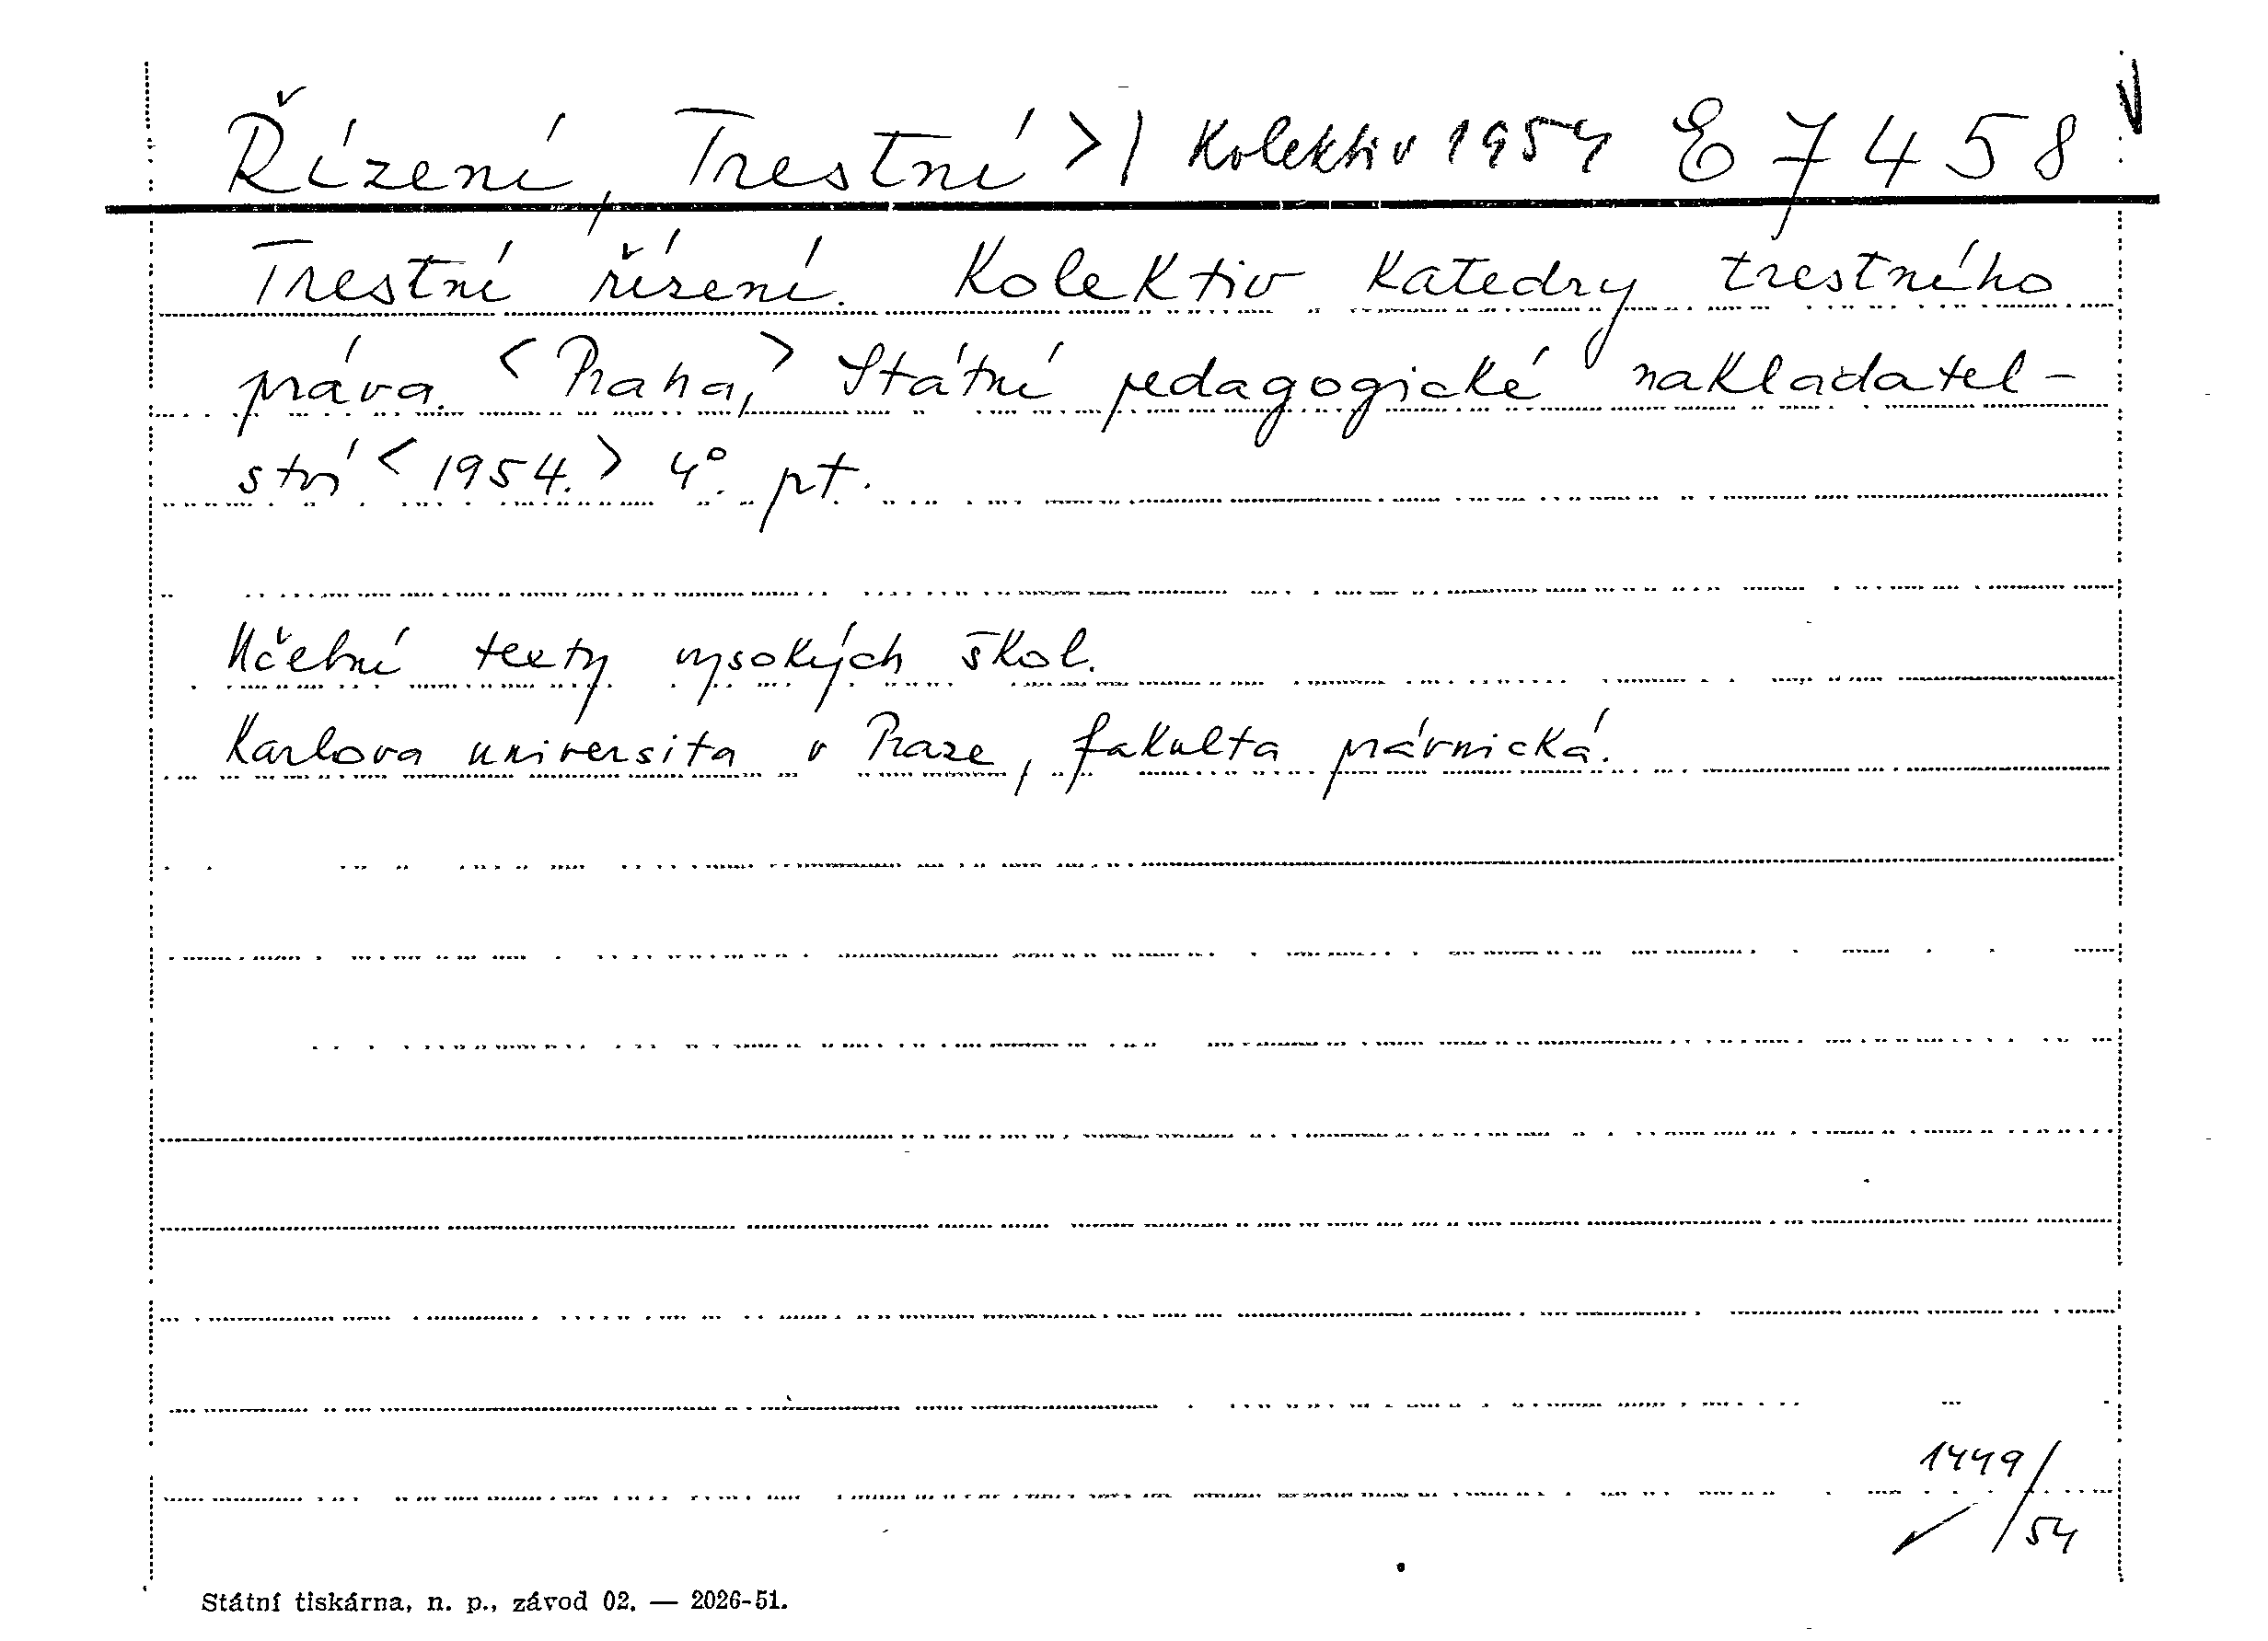 Řízení, Trestní >| Kolektiv 1954 E 7458
Trestní řízení. Kolektiv Katedry trestního
práva. <Praha,> Státní pedagogické nakladatel-
ství <1954.> 4°. pt.
Učební texty vysokých škol.
Karlova universita v Praze, fakulta právnická.
1449/
54
Státní tiskárna, n. p., závod 02. — 2026-51.